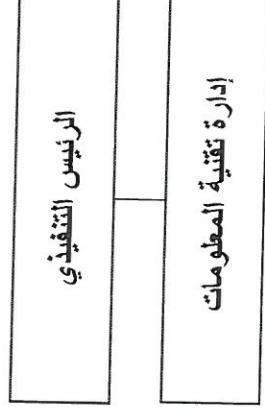 الرئيس التنفيذي
إدارة تقنية المعلومات